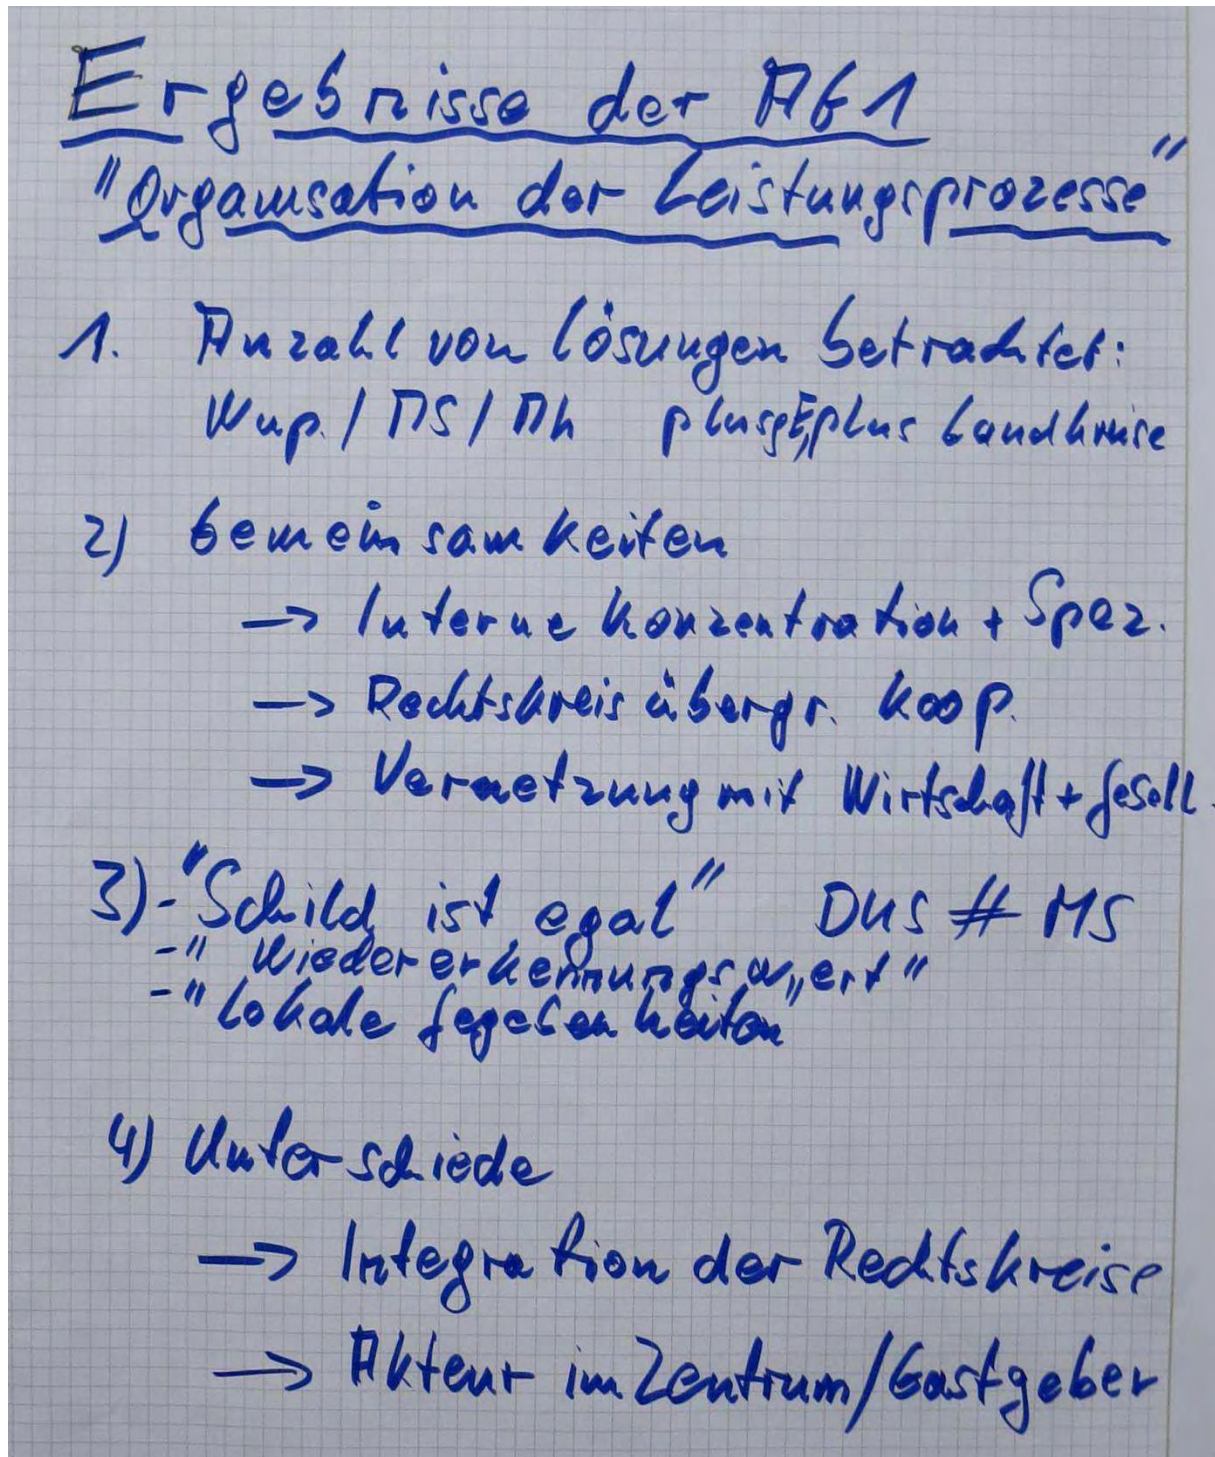 Ergebnisse der AG1
"Organisation der Leistungsprozesse"
1. Anzahl von Lösungen betrachtet:
Wup. / MS / Mh plus GE, plus Landkreise
2) Gemeinsamkeiten
→ Interne Konzentration + Spez.
→ Rechtskreisübergr. Koop.
→ Vernetzung mit Wirtschaft + Gesell.
3) - "Schild ist egal" DUS # MS
- "Wiedererkennungswert"
- "lokale Gegebenheiten"
4) Unterschiede
→ Integration der Rechtskreise
→ Akteur im Zentrum/Gastgeber